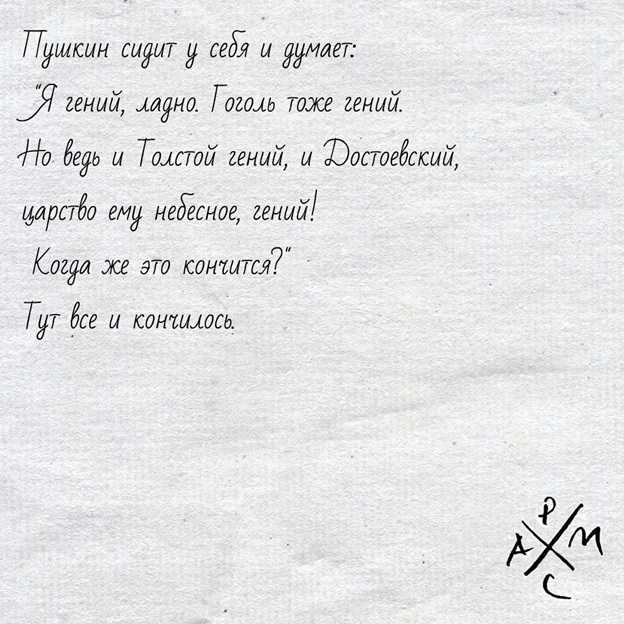 Пушкин сидит у себя и думает:
"Я гений, ладно. Гоголь тоже гений.
Но ведь и Толстой гений, и Достоевский,
царство ему небесное, гений!
Когда же это кончится?"
Тут все и кончилось.
Р
А М
С